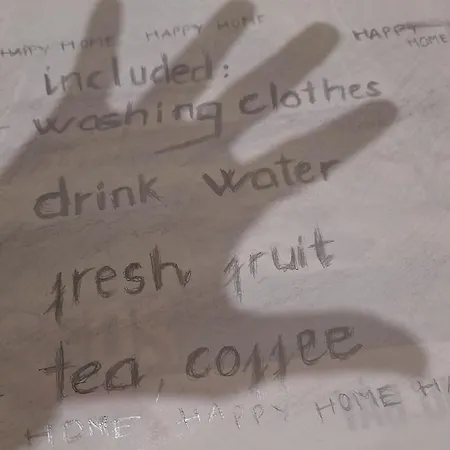 HAPPY HOME HAPPY HOME HAPPY HOME
included:
washing clothes
drink water
fresh fruit
tea, coffee
HOME HAPPY HOME HA